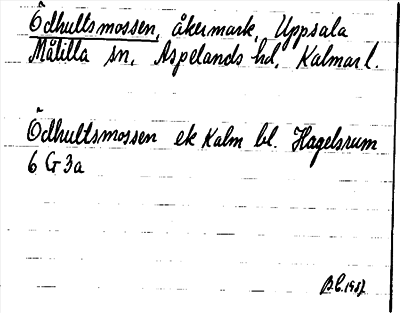 Ödhultsmossen, åkermark, Uppsala
Målilla sn, Aspelands hd, Kalmar l.
Ödhultsmossen ek Kalm bl. Hagelsrum
6 G 3a
B.C. 1987